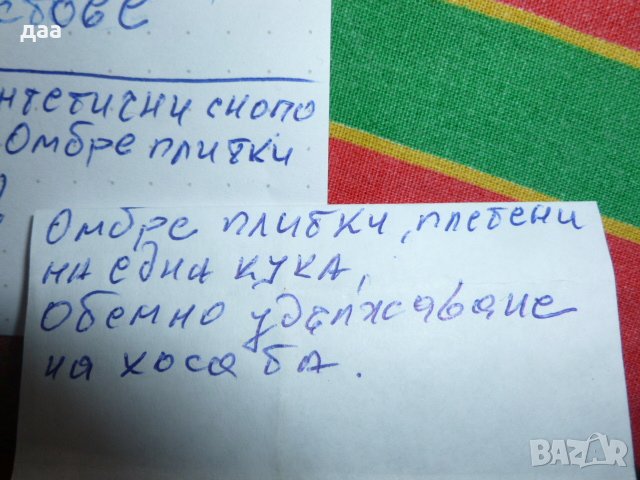 даа
нтетични снопо
Омбре плитки
Омбре плитки, плетени
на една кука,
Обемно удължаване
на хоса БА.
BAZAR